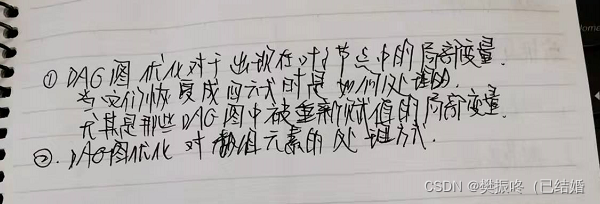 ① DAG图优化对于出现在叶子节点中的局部变量.
当它们恢复成四元式时是如何处理的.
尤其是那些DAG图中被重新赋值的局部变量.
②. DAG图优化对数组元素的处理方式.
CSDN @樊振咚(已结婚